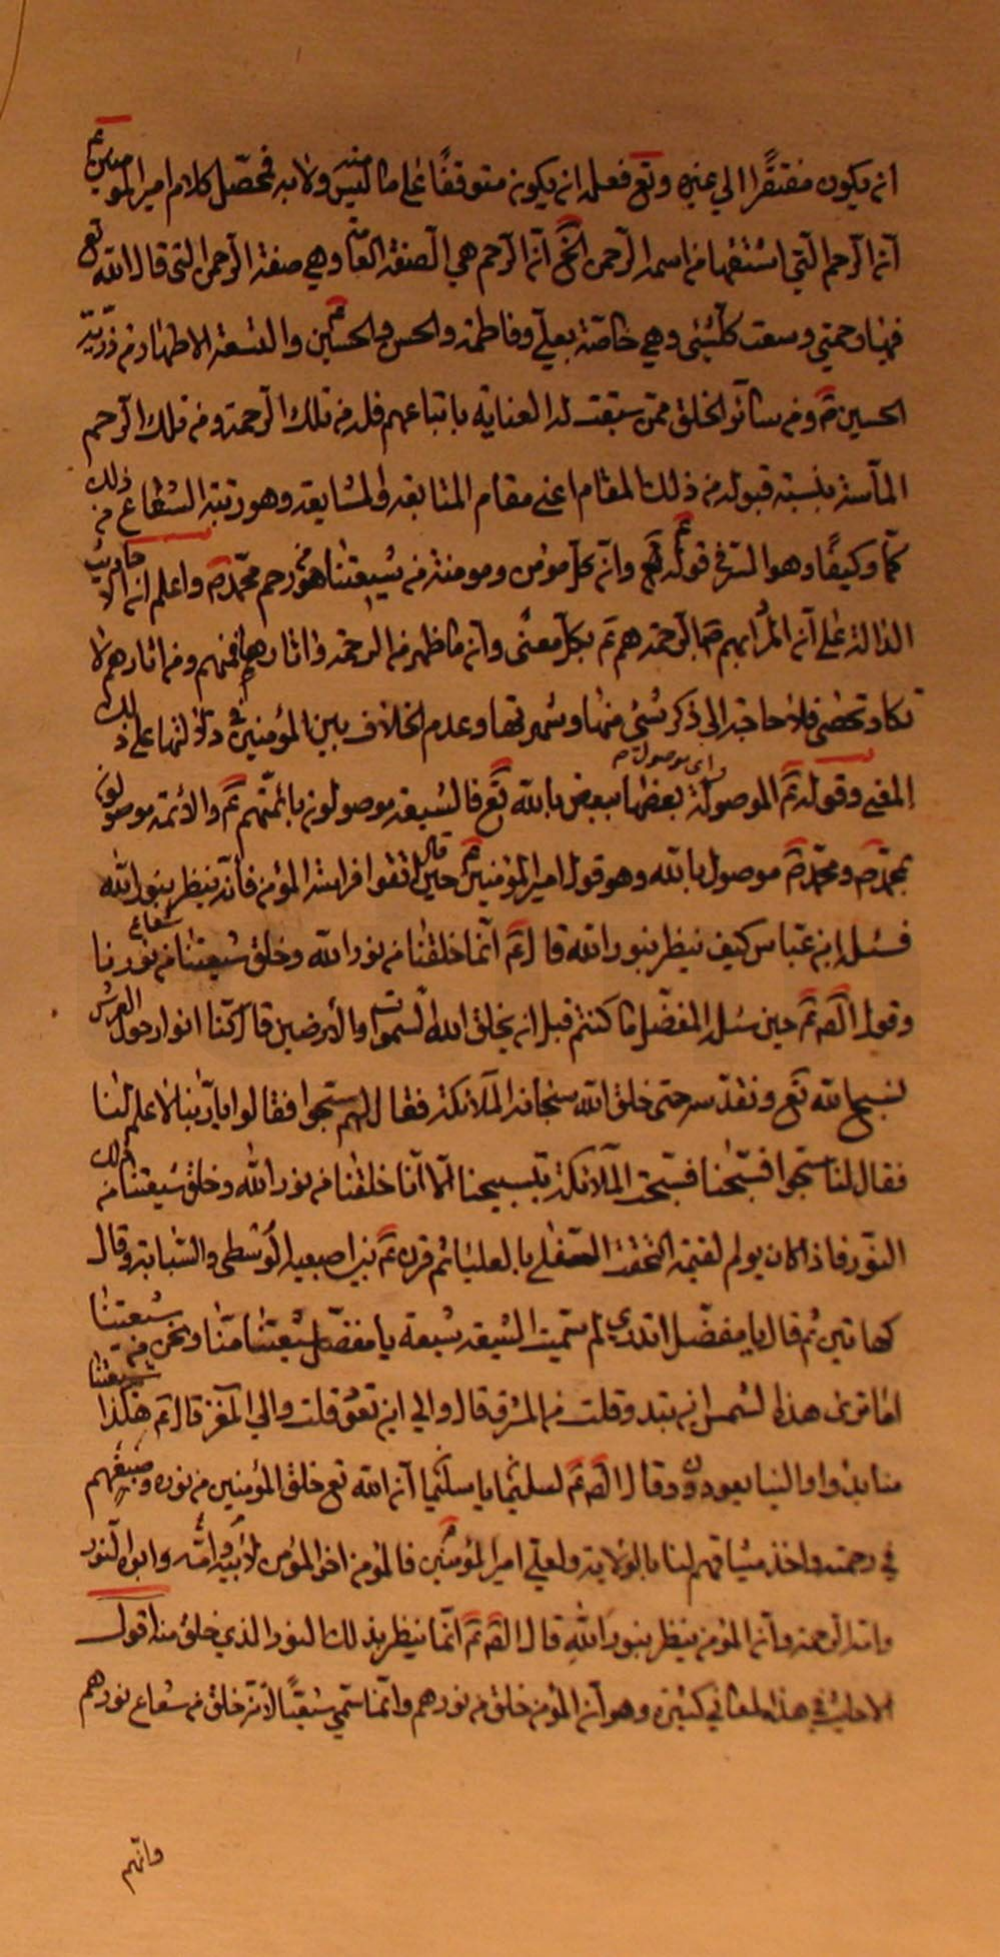 ان يكون مفتقرا الى غيره وتع فعله ان يكون متوقفا على ما ليس منه ولا به فمحصّل كلام امير المؤمنين ع
ان الرحم التي اشتقها من اسمه الرحمن الخ انّ الرحم هي الصفة وهي صفة الرحمن التي قال الله تع
فيها ورحمتي وسعت كلّ شئ وهي خاصّة بعلي وفاطمة والحسن والحسين والتسعة الاطهار من ذرّية
الحسين ع ومن سائر الخلق ممن سبقت له العناية باتباعهم فله من تلك الرحمة ومن تلك الرحم
الماسّة بنسبة قبوله من ذلك المقام اعني مقام المتابعة والمشايعة وهو رتبة الشعاع من ذلك
كمّا وكيفا وهو السرّ في قوله وان كل مؤمن ومومنة من شيعتنا هو من رحم محمّد ص واعلم ان الاحاديث
الدالة على انّ المراد بهم بالرحمة هم ع بكل معنى وان ما ظهر من الرحمة واثارها فمنهم ومن اثارهم لا
تكاد تحصى فلا حاجة الى ذكر شئ منها وشهرتها وعدم الخلاف بين المؤمنين في دلالتها على ذلك
المعنى وقوله ع الموصولة اي موصولة بعضها ببعض بالله تع فالشيعة موصولون بائمّتهم ع والائمة موصولون
بمحمّد ص ومحمّد ص موصول بالله وهو قول امير المؤمنين ع حين قال اتقوا فراسة المؤمن فانّه ينظر بنور الله
فسئل ابن عباس كيف ينظر بنور الله قال ع انّما خلقنا من نور الله وخلق شيعتنا من شعاع نورنا
وقول الص ع حين سئل المفضّل ما كنتم قبل ان يخلق الله السموات والارضين قال كنّا انوارا حول العرش
نسبح الله تع ونقدّسه حتى خلق الله سبحانه الملائكة فقال لهم سبّحوا فقالوا يا ربّنا لا علم لنا
فقال لنا سبّحوا فسبّحنا فسبّحت الملائكة بتسبيحنا الا انّا خلقنا من نور الله وخلق شيعتنا من ذلك
النور فاذا كان يوم القيمة التحقت السفلى بالعليا ثم قرن ع بين اصبعيه الوسطى والسّبابة وقال
كهاتين ثم قال يا مفضّل اتدري لم سمّيت الشيعة شيعة يا مفضّل شيعتنا منّا ونحن من شيعتنا
اما ترى هذه الشمس اين تبدو قلت من المشرق قال والى اين تعود قلت والى المغرب قال ع هكذا شيعتنا
منا بدؤا والينا يعودون وقال الص ع لسليمان يا سليمان انّ الله تع خلق المؤمنين من نوره وصبغهم
في رحمته واخذ ميثاقهم لنا بالولاية ولعلي امير المؤمنين ع فالمؤمن اخو المؤمن لابيه وامّه وابوه النور
وامّه الرحمة وان المؤمن ينظر بنور الله قال الص ع انّما ينظر بذلك النور الذي خلق منه اقول
الاحاديث في هذه المعاني كثيرة وهو انّ المؤمن خلق من نورهم وانّما سمّي شيعيّا لانّه خلق من شعاع نورهم
وانّهم